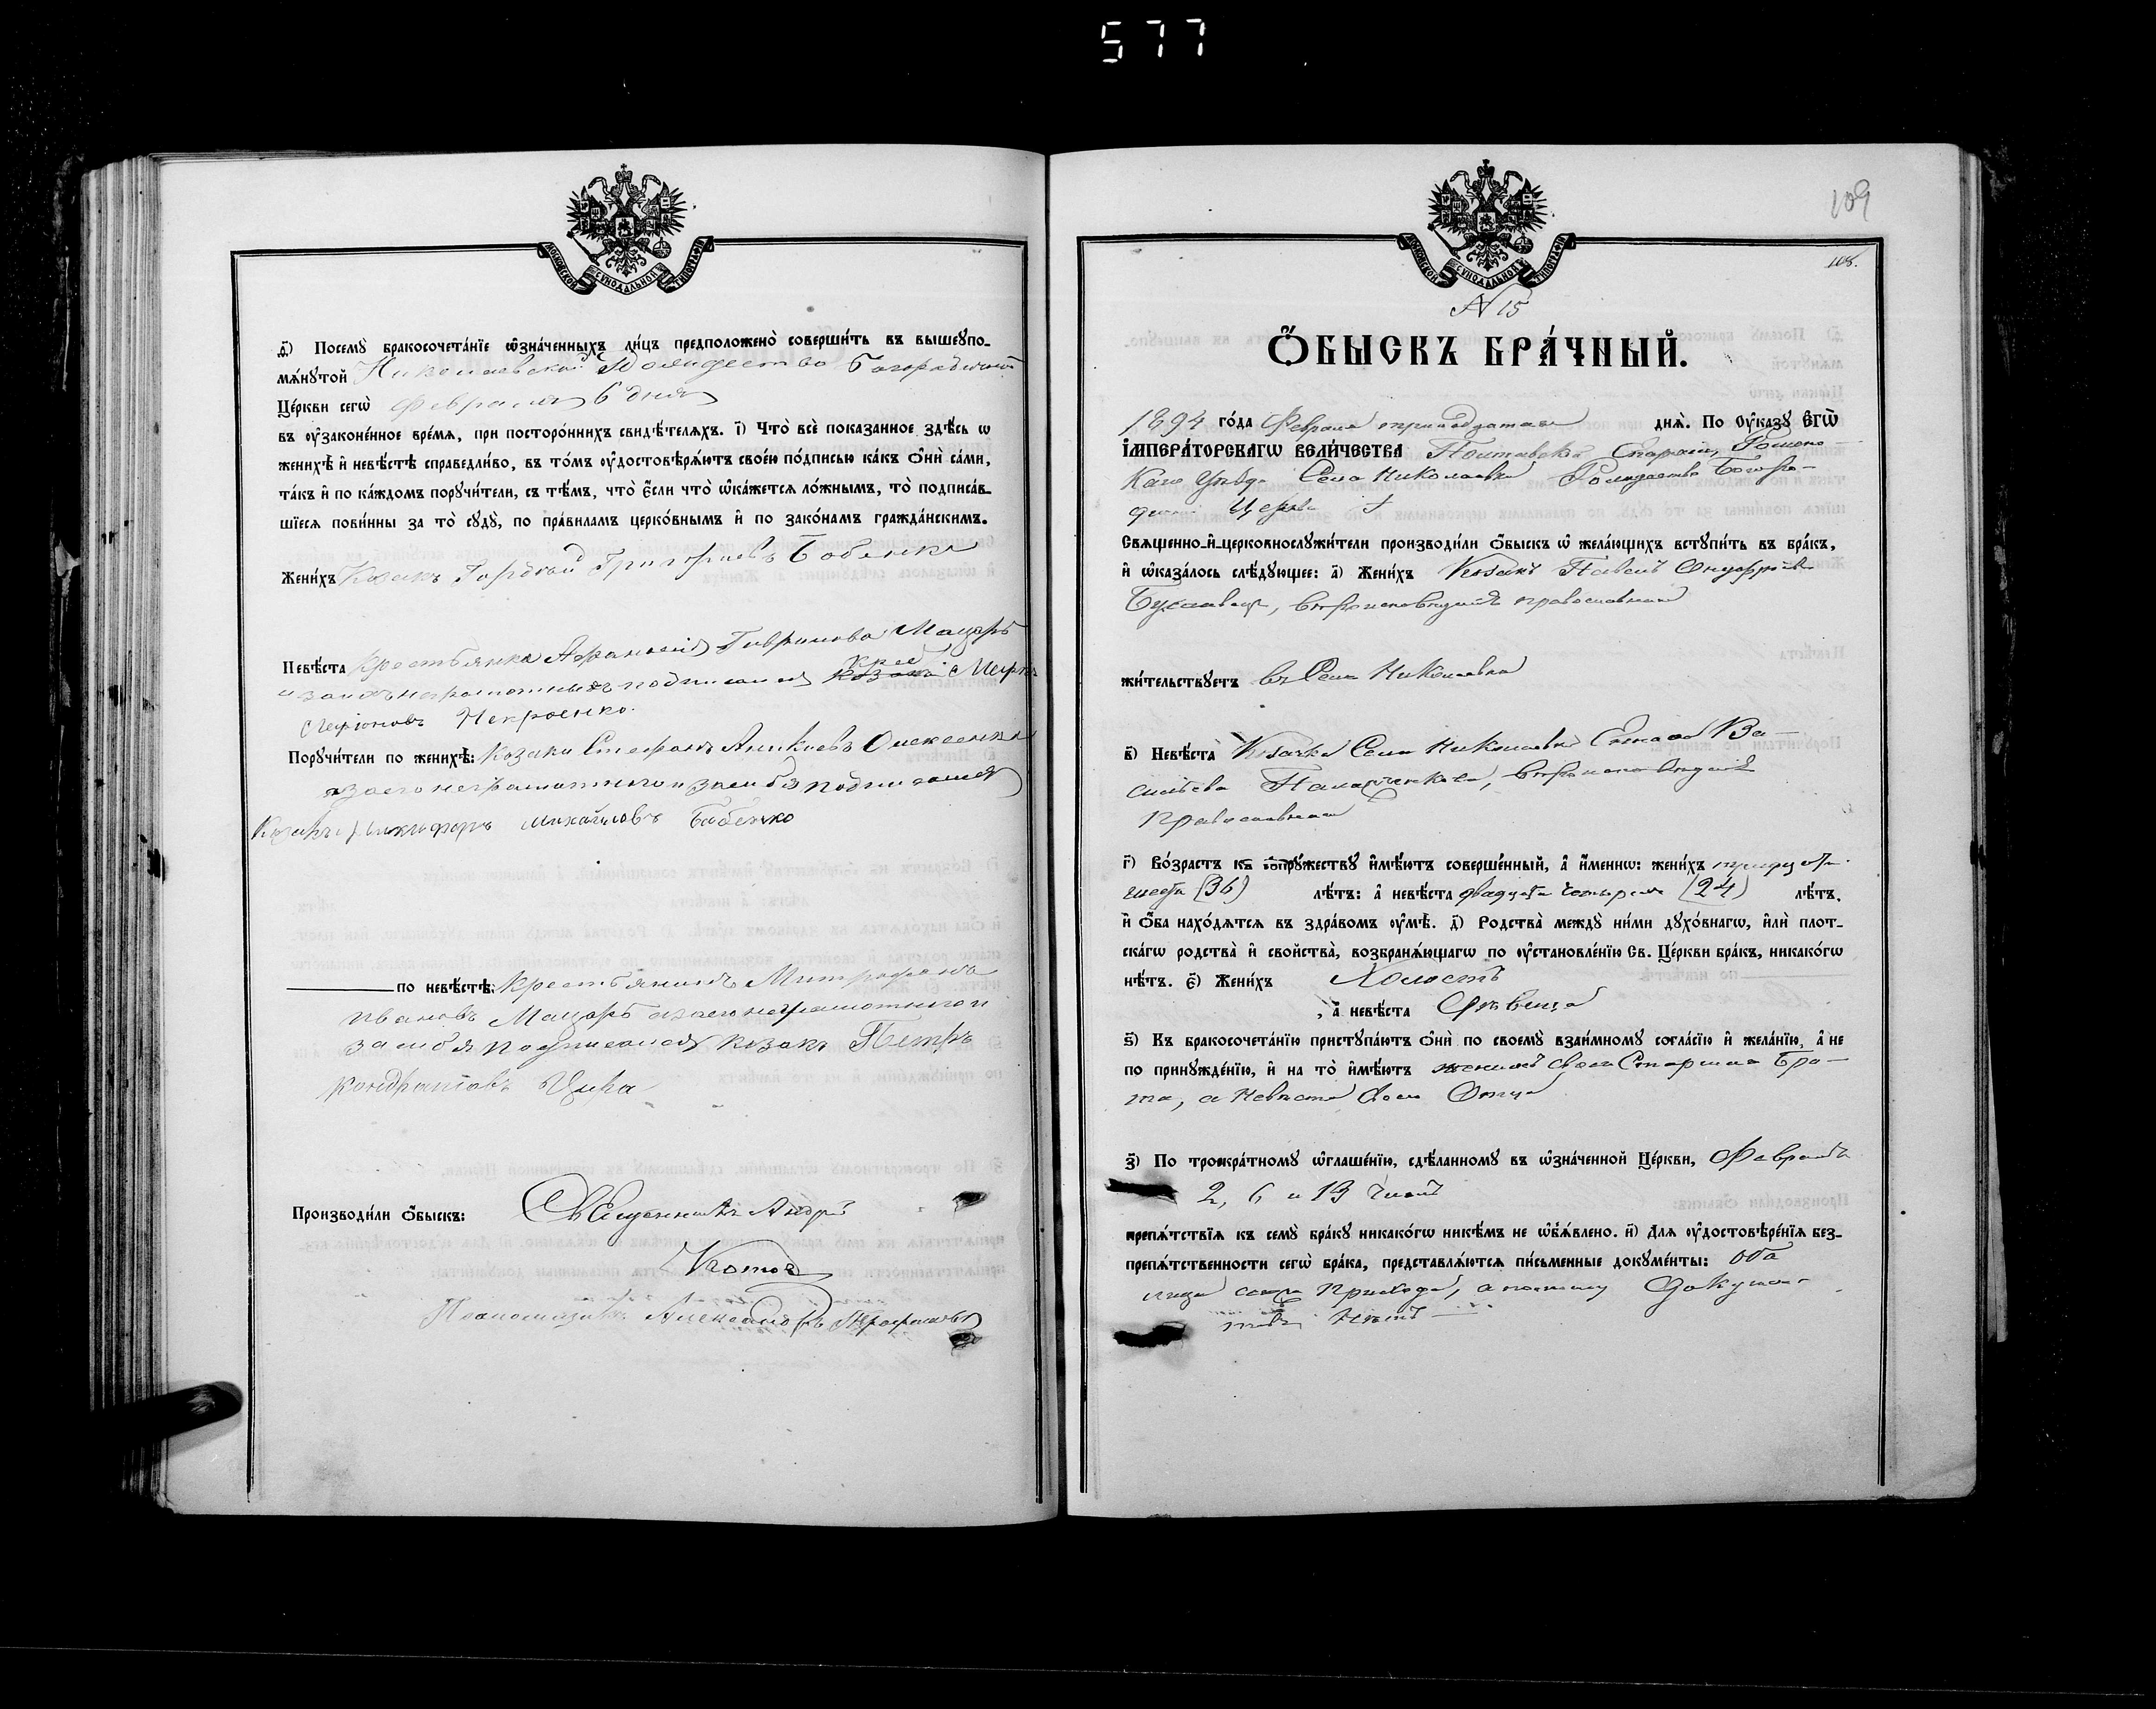 577
МОСКОВСКОЙ СѴНОДАЛЬНОЙ ТИПОГРАФІИ
ѳ҃) Посемꙋ бракосочета́нїе ѡ҆зна́ченныхъ ли́цъ предположено̀ соверши́ть въ вышеꙋпо-
мѧ́нꙋтой Николаевской Рождество Богородичной
Це́ркви сегѡ̀ Февраля 6 дня
въ ᲂу҆зако́ненное вре́мѧ, при посторо́ннихъ свидѣ́телѧхъ. і҃) Что̀ всѐ показанное здѣ́сь ѡ
женихѣ̀ и҆ невѣ́стѣ справедли́во, въ то́мъ ᲂу҆достовѣрѧ́ютъ свое́ю по́дписью ка́къ ѻ҆нѝ са́ми,
та́къ и҆ по ка́ждомъ порꙋчи́тели, съ тѣ́мъ, что̀ є҆́сли что̀ ѡ҆ка́жетсѧ ло́жнымъ, то̀ подписа́в-
шїесѧ пови́нны за то̀ сꙋдꙋ̀, по пра́виламъ церко́внымъ и҆ по зако́намъ гражда́нскимъ.
Жени́хъ Козакъ Гордѣй Григориевъ Бобенко
Невѣ́ста Крестьянка Афанасія Гаврилова Мацарь
а за ихъ неграмотныхъ подписался крес
Некроенко.
Порꙋчи́тели по женихѣ̀: Козаки Стефанъ Аникиевъ Олексенко
а за его неграмотного и за себя подписался
Козакъ Никифоръ Михайловъ Бабенко
по невѣ́стѣ: Крестьянинъ Митрофанъ
Ивановъ Мацарь а за его неграмотного и
за себя подписался козакъ Петръ
Кондратовъ Цира
Производи́ли ѻ҆́быскъ: Священникъ Андрей
Китов
Псаломщикъ Александръ Трофимовъ
109
108.
МОСКОВСКОЙ СѴНОДАЛЬНОЙ ТИПОГРАФІИ
N 15
Ѻ҆́БЫСКЪ БРА́ЧНЫЙ.
1894 го́да Февраля тринадцатаго днѧ̀. По ᲂу҆ка́зꙋ Є҆гѡ̀
І҆мпера́торскагѡ вели́чества Полтавской Епархіи, Ромено-
Каго Уѣзда Села Николаевки Рождество Богоро-
дичной Церкви
Свѧщенно-и҆-церковнослꙋжи́тели производи́ли ѻ҆́быскъ ѡ҆ жела́ющихъ встꙋпи́ть въ бра́къ,
и҆ ѡ҆каза́лось слѣ́дꙋющее: а҃) Жени́хъ Козакъ Павелъ Онуфріевъ
вѣроисповѣданія православнаго
жи́тельствꙋетъ въ Селѣ Николаевкѣ
в҃) Невѣ́ста Козачка Села Николаевки Ва-
сильева вѣроисповѣданія
Православнаго
г҃) Во́зрастъ къ сꙋпрꙋ́жествꙋ и҆мѣ́ютъ соверше́нный, а҆ и҆́меннѡ: жени́хъ тридцать
шесть (36) лѣ́тъ: а҆ невѣ́ста двадцать четыре (24) лѣ́тъ.
и҆ ѻ҆́ба нахо́дѧтсѧ въ здра́вомъ ᲂу҆мѣ̀. д҃) Родства̀ междꙋ̀ ни́ми дꙋхо́внагѡ, и҆лѝ плот-
ска́гѡ родства̀ и҆ свойства̀, возбранѧ́ющагѡ по ᲂу҆становле́нїю Св. Це́ркви бра́къ, никако́гѡ
нѣ́тъ. є҃) Жени́хъ Холостъ
, а҆ невѣ́ста Дѣвица
ѕ҃) Къ бракосочета́нїю пристꙋпа́ютъ ѻ҆нѝ по своемꙋ̀ взаи́мномꙋ согла́сїю и҆ жела́нїю, а҆ не
по принꙋжде́нїю, и҆ на то̀ и҆мѣ́ютъ женихъ своего Старшаго Бра-
та, а невѣста своего Отца
з҃) По трокра́тномꙋ ѡ҆глаше́нїю, сдѣ́ланномꙋ въ ѡ҆зна́ченной Це́ркви, Февраля
2, 6 и 13 чиселъ
препѧ́тствїѧ къ семꙋ̀ бра́кꙋ никако́гѡ никѣ́мъ не ѡ҆б̾ѧ́влено. и҃) Длѧ ᲂу҆достовѣре́нїѧ без-
препѧ́тственности сегѡ̀ бра́ка, представлѧ́ютсѧ пи́сьменные докꙋме́нты: оба
лица сего прихода, а потому докумен-
товъ нѣтъ